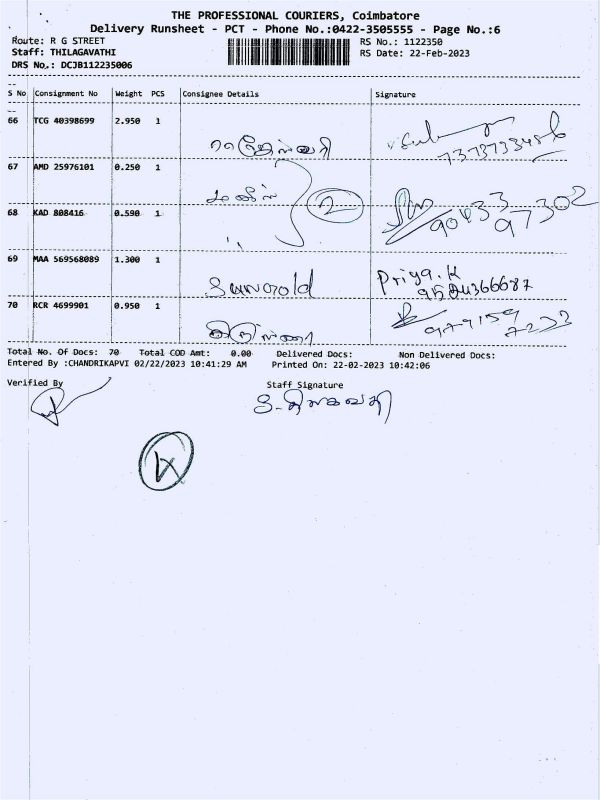 THE PROFESSIONAL COURIERS, Coimbatore
Delivery Runsheet - PCT - Phone No.:0422-3505555 - Page No.:6
Route: R G STREET
RS No.: 1122350
Staff: THILAGAVATHI
RS Date: 22-Feb-2023
DRS No.: DCJB112235006
S No Consignment No Weight PCS Consignee Details Signature
66 TCG 40398699 2.950 1
67 AMD 25976101 0.250 1
2
68 KAD 808416 0.590 1
90433
97302
69 MAA 569568089 1.300 1
Priya.K
9524366687
70 RCR 4699901 0.950 1
979159
7233
Total No. Of Docs: 70 Total COD Amt: 0.00 Delivered Docs: Non Delivered Docs:
Entered By :CHANDRIKAPVI 02/22/2023 10:41:29 AM Printed On: 22-02-2023 10:42:06
Verified By Staff Signature